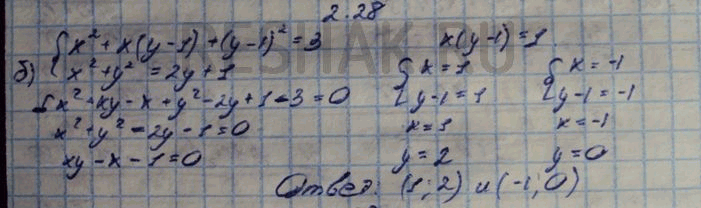 2.28
б) { x² + x(y-1) + (y-1)² = 3
x² + y² = 2y + 1
{ x² + xy - x + y² - 2y + 1 - 3 = 0
x² + y² - 2y - 1 = 0
xy - x - 1 = 0
x(y-1) = 1
{ x = 1
y-1 = 1
x = 1
y = 2
{ x = -1
y-1 = -1
x = -1
y = 0
Ответ: (1; 2) и (-1; 0)
RESHAK.RU